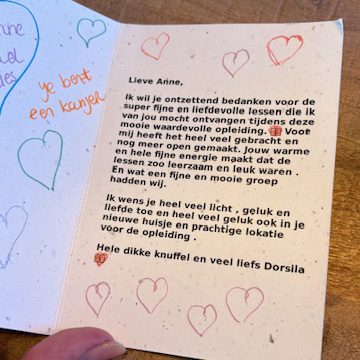 je bent
een kanjer
Lieve Anne,
Ik wil je ontzettend bedanken voor de
super fijne en liefdevolle lessen die ik
van jou mocht ontvangen tijdens deze
mooie waardevolle opleiding. Voor
mij heeft het heel veel gebracht en
nog meer open gemaakt. Jouw warme
en hele fijne energie maakt dat de
lessen zoo leerzaam en leuk waren .
En wat een fijne en mooie groep
hadden wij.
Ik wens je heel veel licht , geluk en
liefde toe en heel veel geluk ook in je
nieuwe huisje en prachtige lokatie
voor de opleiding .
Hele dikke knuffel en veel liefs Dorsila